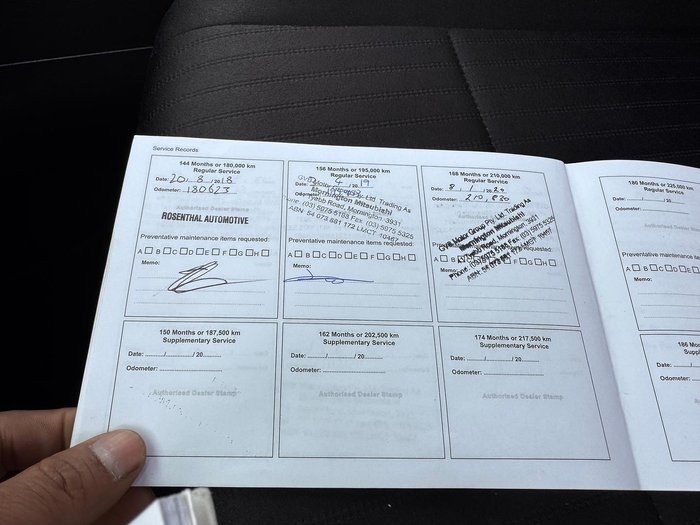 Service Records
144 Months or 180,000 km
Regular Service
Date: 20 / 8 / 2018
Odometer: 180623
Authorised Dealer Stamp
ROSENTHAL AUTOMOTIVE
Preventative maintenance items requested:
A B C D E F G H
Memo:
156 Months or 195,000 km
Regular Service
Date: / 2019
Odometer:
Motor Pty Ltd Trading As
Mornington Mitsubishi
Road, Mornington 3931
Phone: (03) 5975 5188 Fax: (03) 5975 5325
ABN: 54 073 881 172 LMCT
Preventative maintenance items requested:
A B C D E F G H
Memo:
168 Months or 210,000 km
Regular Service
Date: 8 / 1 / 20
Odometer: 210,
Motor Group Pty Ltd Trading As
Mornington Mitsubishi
Road, Mornington 3931
Phone (03) 5975 Fax (03) 5975
ABN: 54 073 881 172 LMCT
Preventative maintenance items requested:
A B C D E F G H
Memo:
150 Months or 187,500 km
Supplementary Service
Date: / / 20
Odometer:
Authorised Dealer Stamp
162 Months or 202,500 km
Supplementary Service
Date: / / 20
Odometer:
Authorised Dealer Stamp
174 Months or 217,500 km
Supplementary Service
Date: / / 20
Odometer:
Authorised Dealer Stamp
180 Months or 225,000
Regular Service
Date: / / 20
Odometer:
Authorised Dealer
Preventative maintenance items
A B C D E
Memo:
186 Mo
Supp
Date:
Odometer:
Autho